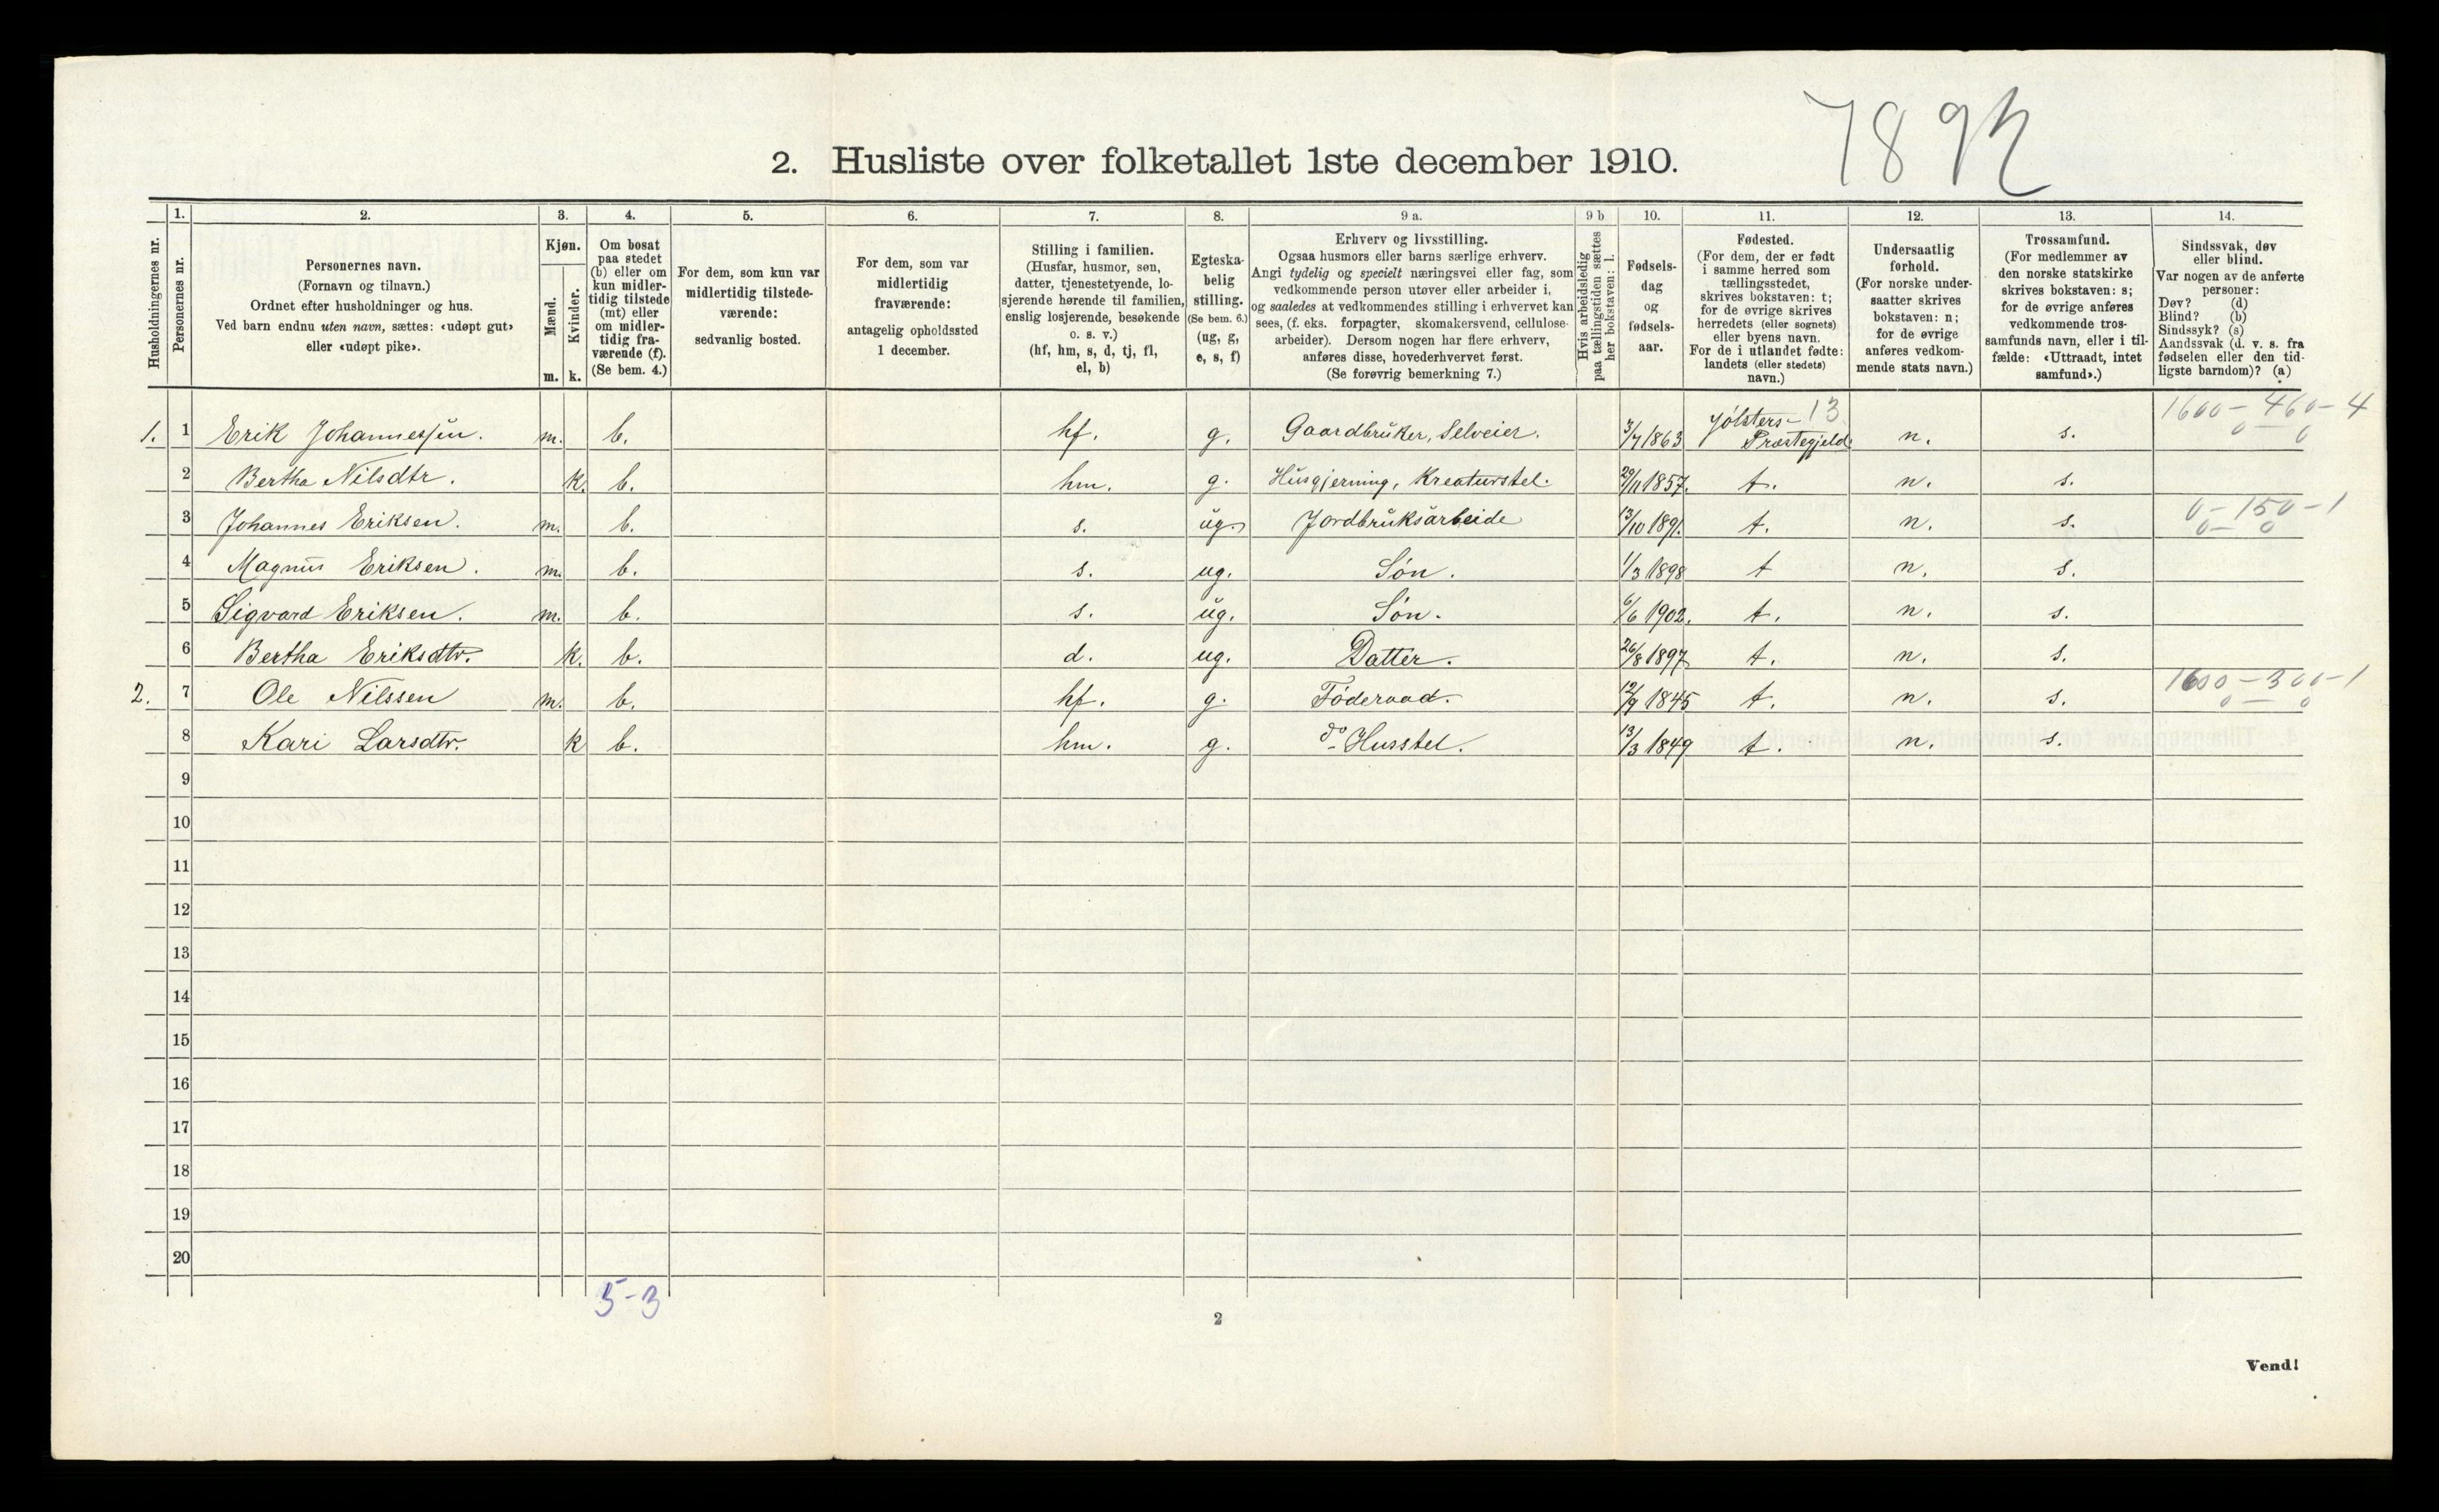 789
2. Husliste over folketallet 1ste december 1910.
1. 2. 3. 4. 5. 6. 7. 8. 9 a. 9 b 10. 11. 12. 13. 14.
Husholdningernes nr.
Personernes nr.
Personernes navn.
(Fornavn og tilnavn.)
Ordnet efter husholdninger og hus.
Ved barn endnu uten navn, sættes: «udøpt gut»
eller «udøpt pike».
Kjøn.
Mænd.
Kvinder.
m. k.
Om bosat
paa stedet
(b) eller om
kun midler-
tidig tilstede
(mt) eller
om midler-
tidig fra-
værende (f).
(Se bem. 4.)
For dem, som kun var
midlertidig tilstede-
værende:
sedvanlig bosted.
For dem, som var
midlertidig
fraværende:
antagelig opholdssted
1 december.
Stilling i familien.
(Husfar, husmor, søn,
datter, tjenestetyende, lo-
sjerende hørende til familien,
enslig losjerende, besøkende
o. s. v.)
(hf, hm, s, d, tj, fl,
el, b)
Egteska-
belig
stilling.
(Se bem. 6.)
(ug, g,
e, s, f)
Erhverv og livsstilling.
Ogsaa husmors eller barns særlige erhverv.
Angi tydelig og specielt næringsvei eller fag, som
vedkommende person utøver eller arbeider i,
og saaledes at vedkommendes stilling i erhvervet kan
sees, (f. eks. forpagter, skomakersvend, cellulose-
arbeider). Dersom nogen har flere erhverv,
anføres disse, hovederhvervet først.
(Se forøvrig bemerkning 7.)
Hvis arbeidsledig
paa tællingstiden sættes
her bokstaven: l.
Fødsels-
dag
og
fødsels-
aar.
Fødested.
(For dem, der er født
i samme herred som
tællingsstedet,
skrives bokstaven: t;
for de øvrige skrives
herredets (eller sognets)
eller byens navn.
For de i utlandet fødte:
landets (eller stedets)
navn.)
Undersaatlig
forhold.
(For norske under-
saatter skrives
bokstaven: n;
for de øvrige
anføres vedkom-
mende stats navn.)
Trossamfund.
(For medlemmer av
den norske statskirke
skrives bokstaven: s;
for de øvrige anføres
vedkommende tros-
samfunds navn, eller i til-
fælde: «Uttraadt, intet
samfund».)
Sindssvak, døv
eller blind.
Var nogen av de anførte
personer:
Døv? (d)
Blind? (b)
Sindssyk? (s)
Aandssvak (d. v. s. fra
fødselen eller den tid-
ligste barndom)? (a)
1. 1 Erik Johannessen. m. b. hf. g. Gaardbruker, Selveier. 3/7 1863 Jølsters- Præstegjeld 13 n. s. 1600-460-4 0-0
2 Bertha Nilsdtr. k. b. hm. g. Husgjerning, Kreaturstel. 29/11 1857. t. n. s.
3 Johannes Eriksen. m. b. s. ug. Jordbruksarbeide 13/10 1891. t. n. s. 0-150-1 0-0
4 Magnus Eriksen. m. b. s. ug. Søn. 1/3 1898 t n. s.
5 Sigvard Eriksen. m. b. s. ug. Søn. 6/6 1902. t. n. s.
6 Bertha Eriksdtr. k. b. d. ug. Datter. 26/8 1897 t. n. s.
2. 7 Ole Nilssen m. b. hf. g. Føderaad. 12/9 1845 t. n. s. 1600-300-1 0-0
8 Kari Larsdtr. k b. hm. g. do Husstel. 13/3 1849 t. n. s.
9
10
11
12
13
14
15
16
17
18
19
20
5-3
2
Vend!